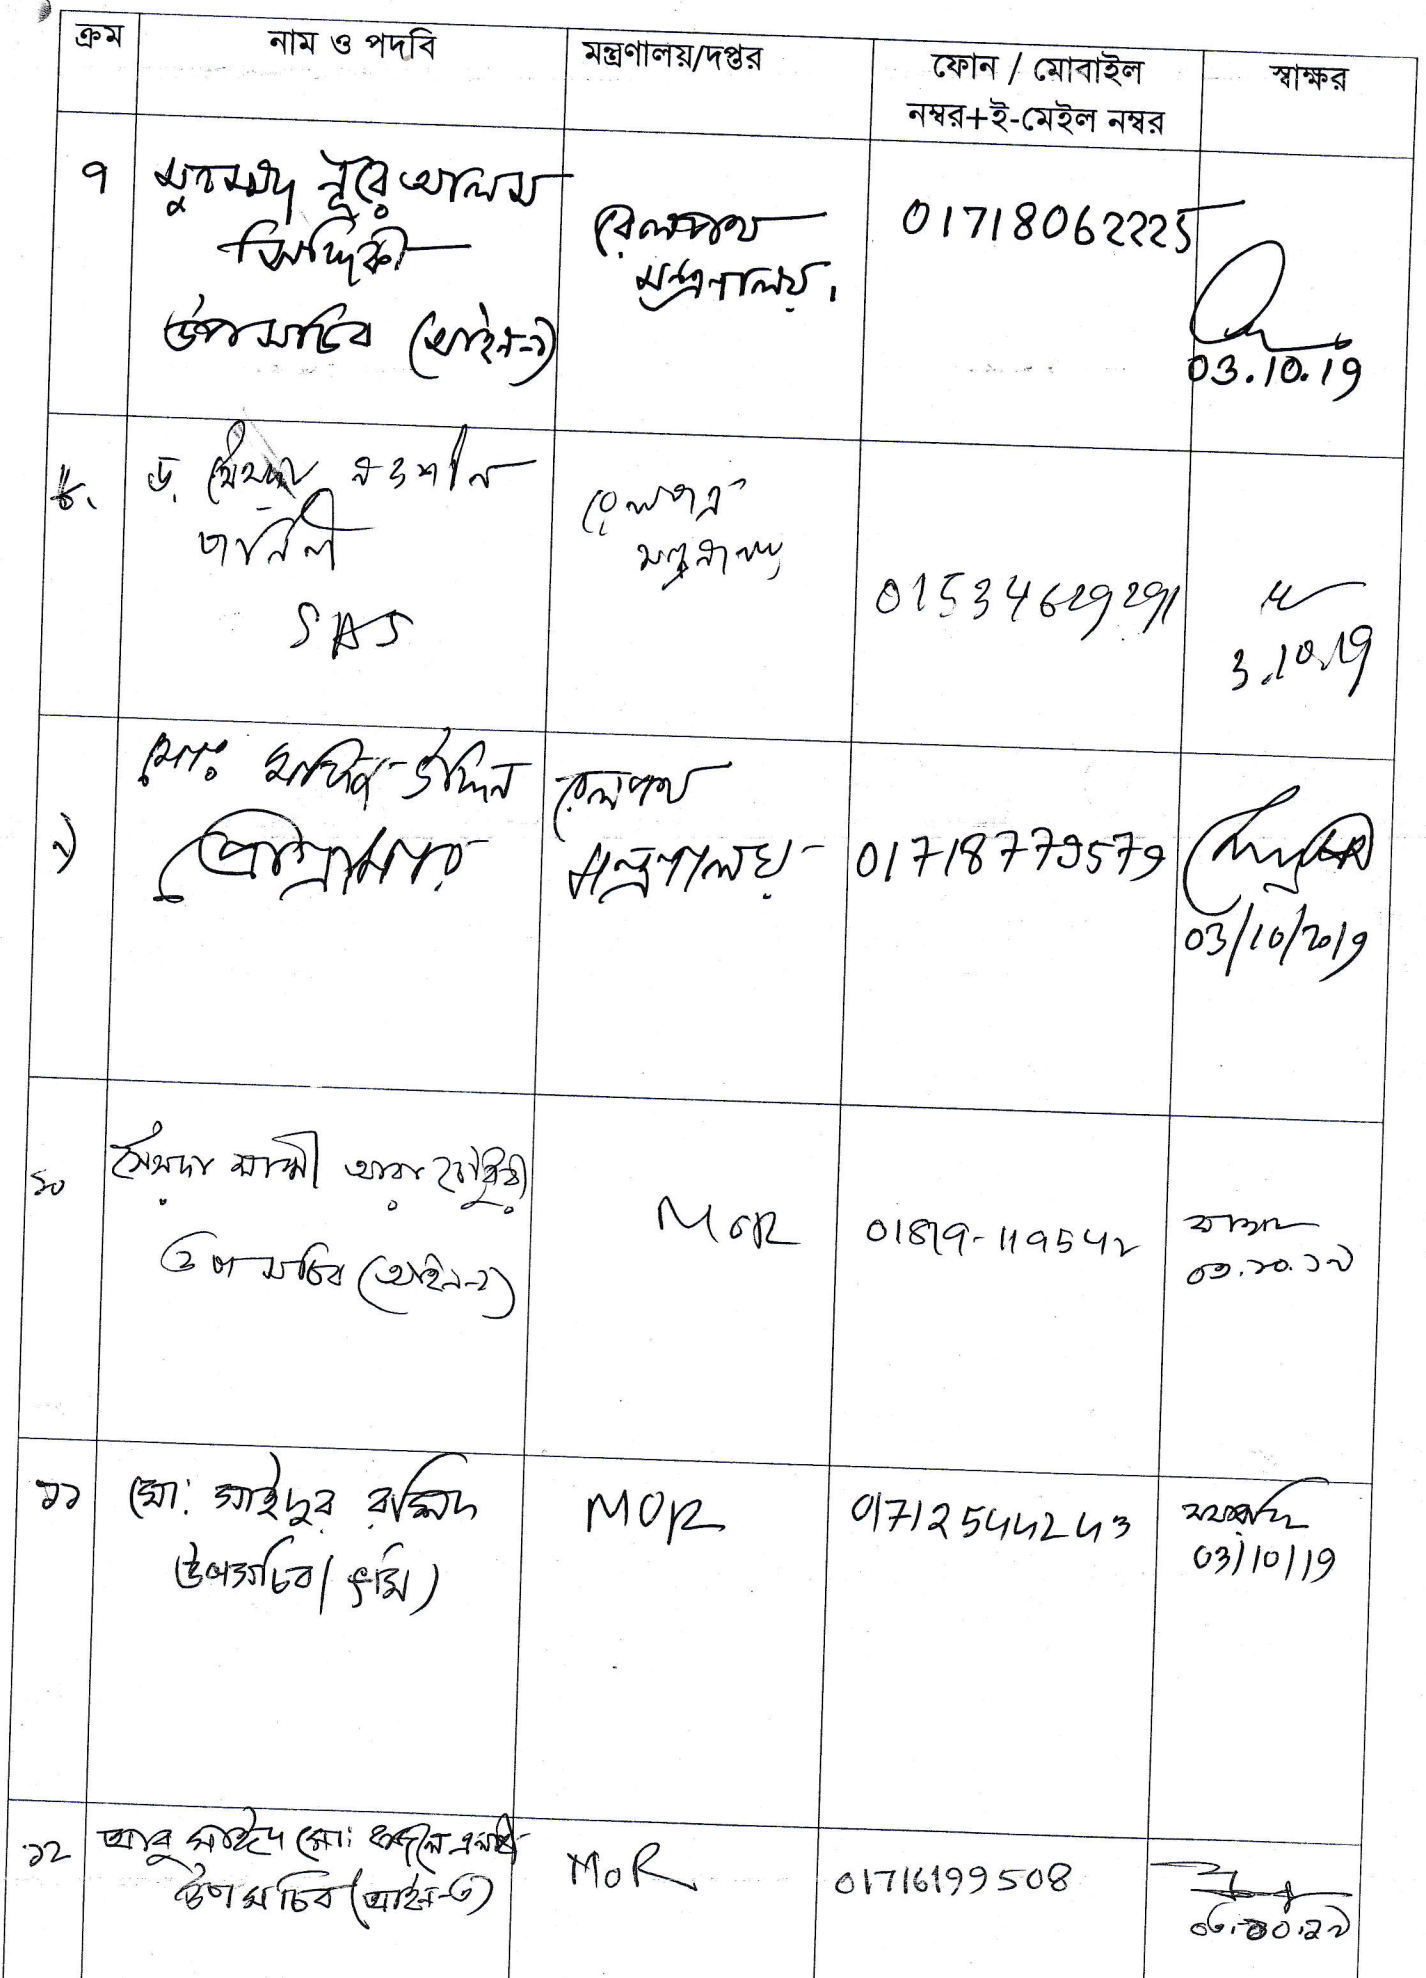 ক্রম নাম ও পদবি মন্ত্রণালয়/দপ্তর ফোন / মোবাইল নম্বর+ই-মেইল নম্বর স্বাক্ষর
৭ মুহাম্মদ নূরে আলম
সিদ্দিকী
উপসচিব (আইন-১)
রেলপথ
মন্ত্রণালয়।
01718062225
03.10.19
৮. ড. সৈয়দা নওশীন
পর্ণিনী
SAS
রেলপথ
মন্ত্রণালয়
01534629291
3.10.19
৯) মোঃ উদ্দিন
প্রোগ্রামার
রেলপথ
মন্ত্রণালয়
01718779579
03/10/2019
১০ সৈয়দা আরা চৌধুরী
উপসচিব (আইন-২)
MOR
01819-119542
০৩.১০.১৯
১১ মো: সাইদুর রশিদ
উপসচিব (ভূমি)
MOR
01712544243
03/10/19
১২ আবু সাইদ মো:
উপসচিব (আইন-৩)
MoR
01716199508